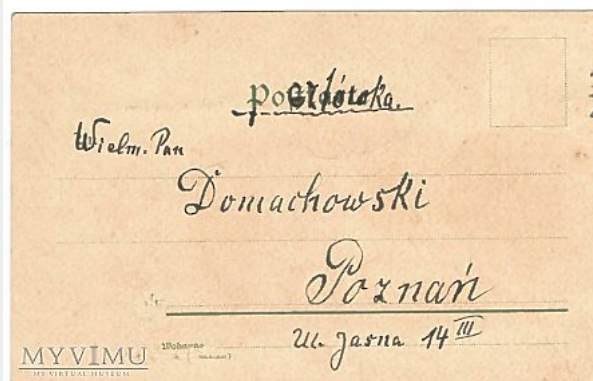 Pocztówka.
Wielm. Pan
Domachowski
Poznań
Ul. Jasna 14 III
Wohnung
MYVIMU
MY VIRTUAL MUSEUM